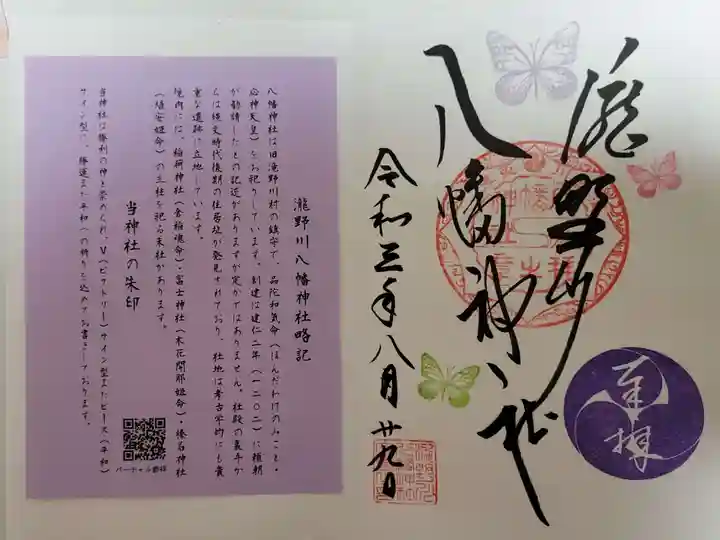 瀧野川
八幡神社
奉拝
令和三年八月廿九日
瀧野川八幡神社略記
八幡神社は旧滝野川村の鎮守で、品陀和気命（ほんだわけのみこと・
応神天皇）をお祀りしています。創建は建仁二年（一二〇二）に頼朝
が勧請したとの記述がありますが定かではありません。社殿の裏手か
らは縄文時代後期の住居址が発見されており、社地は考古学的にも貴
重な遺跡に立地しています。
境内には、稲荷神社（倉稲魂命）・冨士神社（木花開耶姫命）・榛名神社
（埴安姫命）の三柱を祀る末社があります。
当神社の朱印
当神社は勝利の神と崇められ、V（ビクトリー）サイン型またピース（平和）
サイン型に、勝運また平和への祈りを込めてお書きしております。
バーチャル参拝